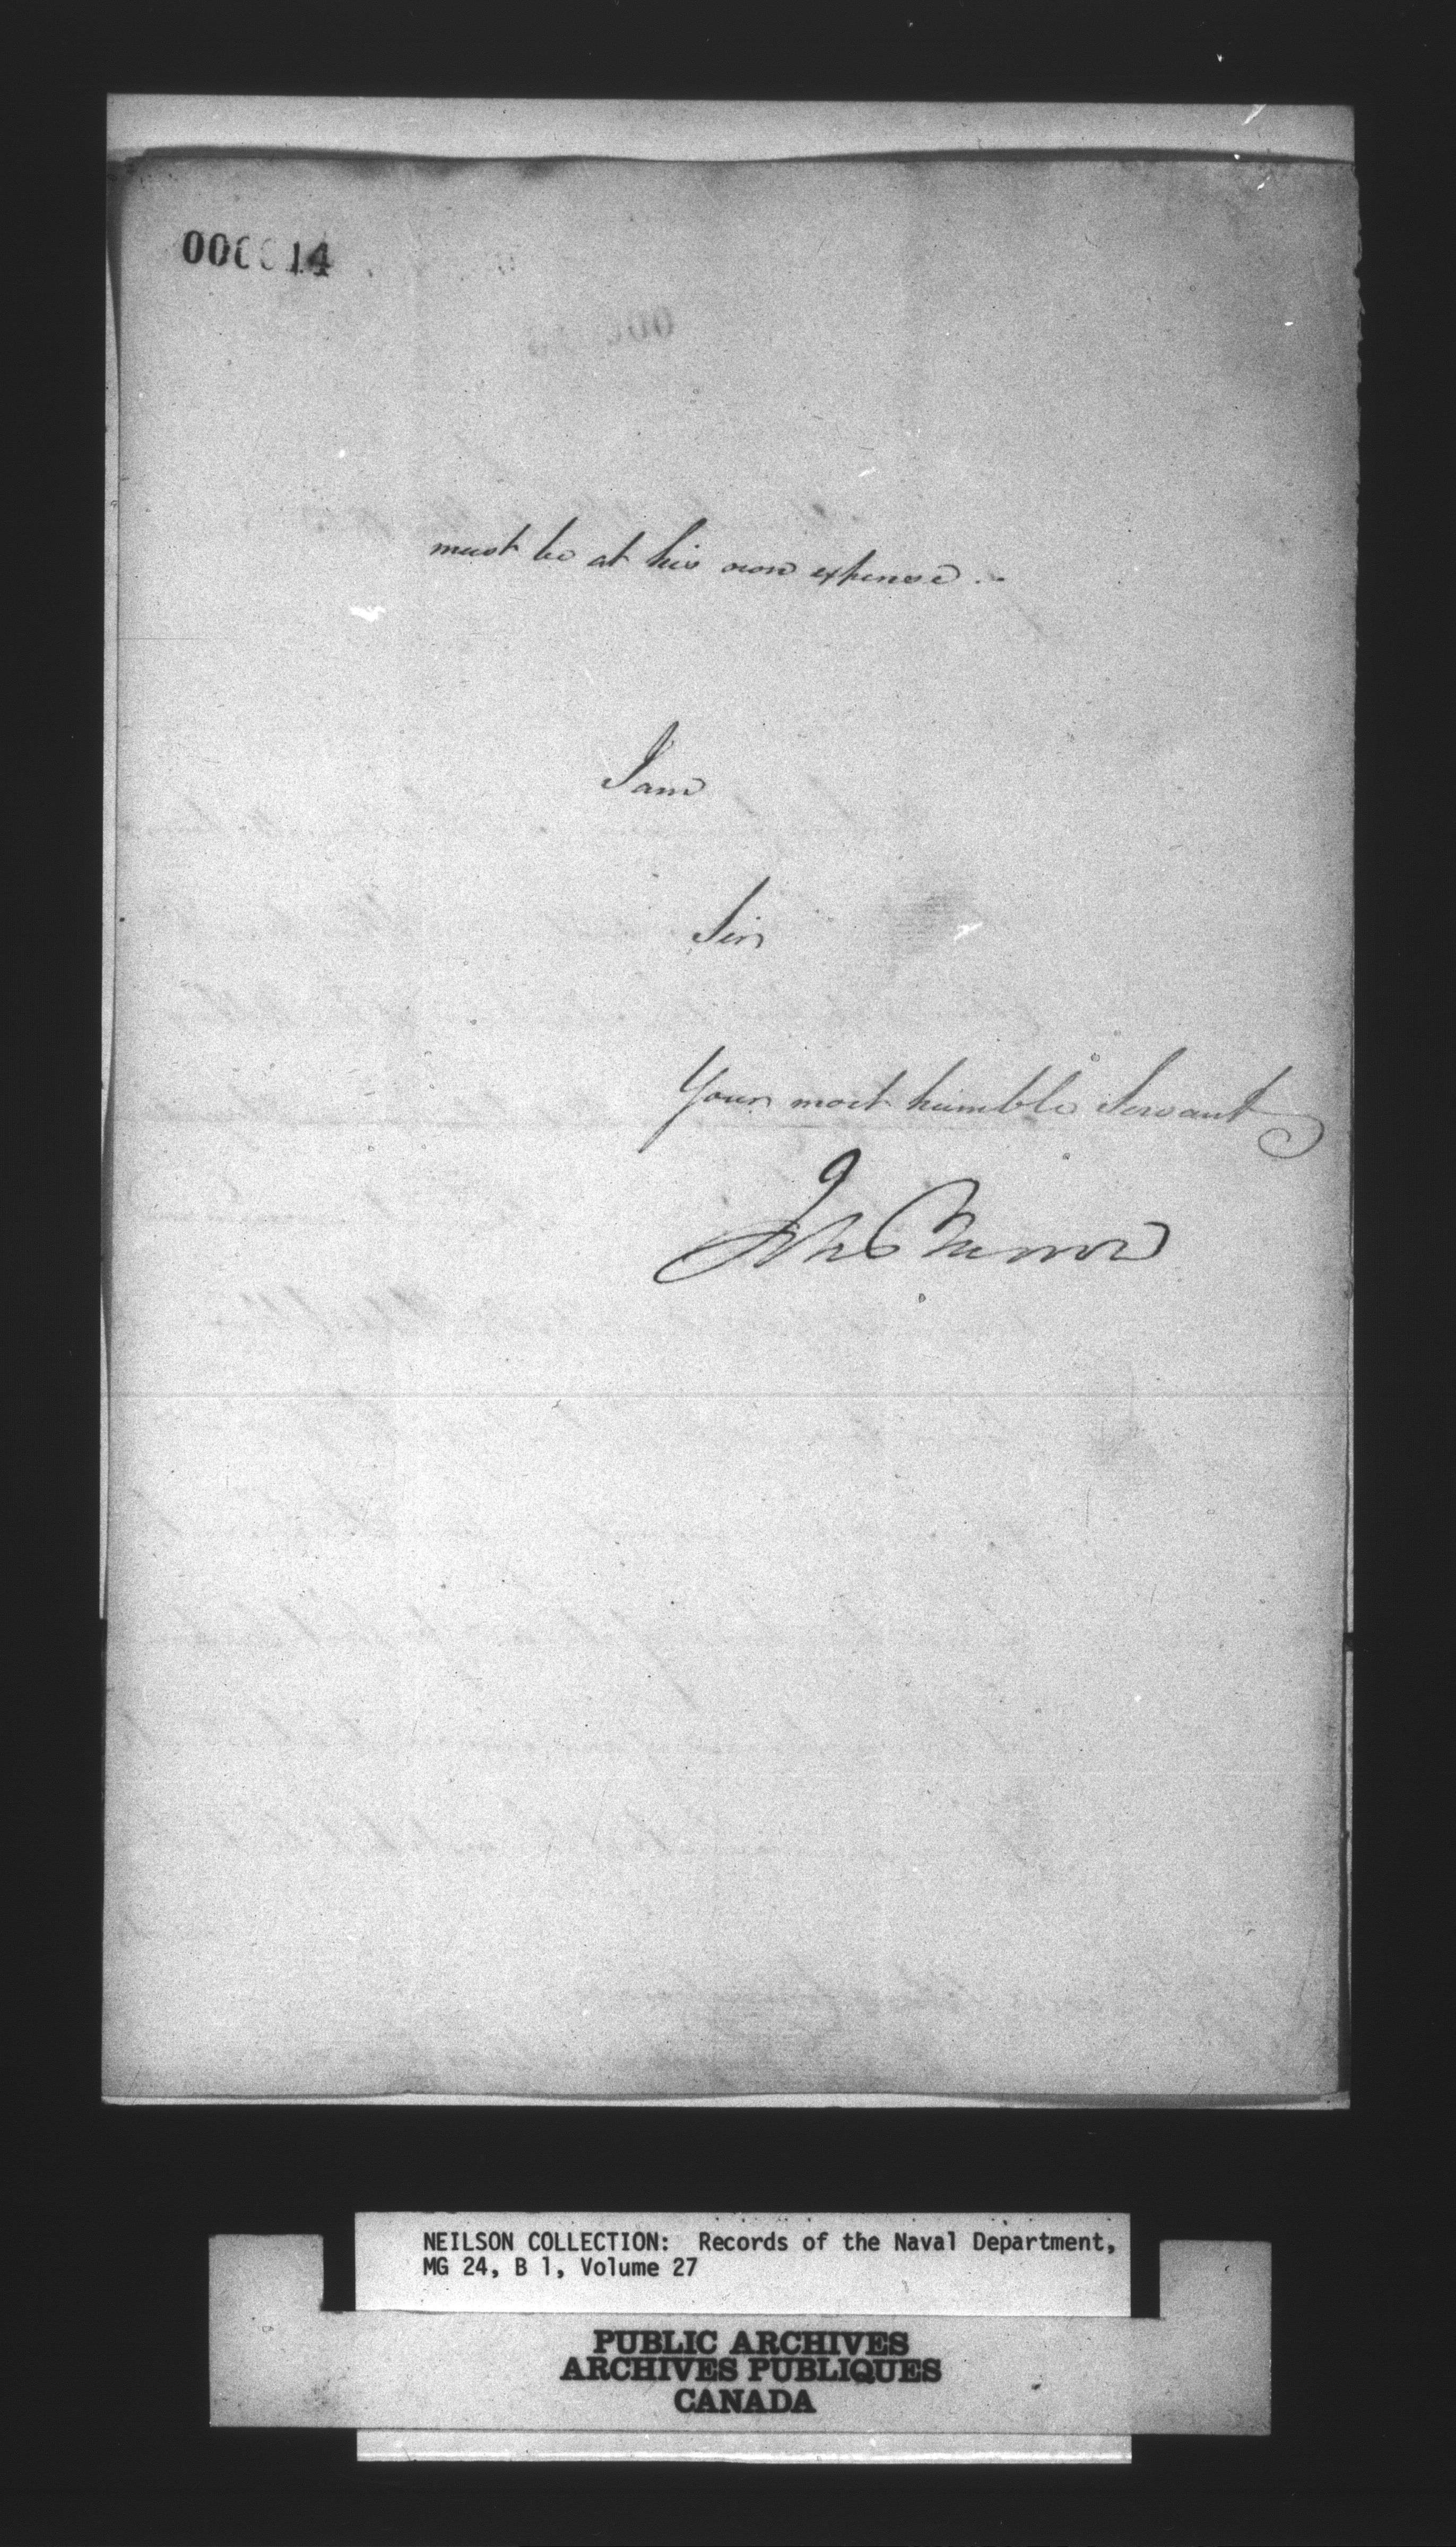 000014
must be at his own expense. -
I am
Sir
Your most humble Servant
NEILSON COLLECTION: Records of the Naval Department,
MG 24, B 1, Volume 27
PUBLIC ARCHIVES
ARCHIVES PUBLIQUES
CANADA